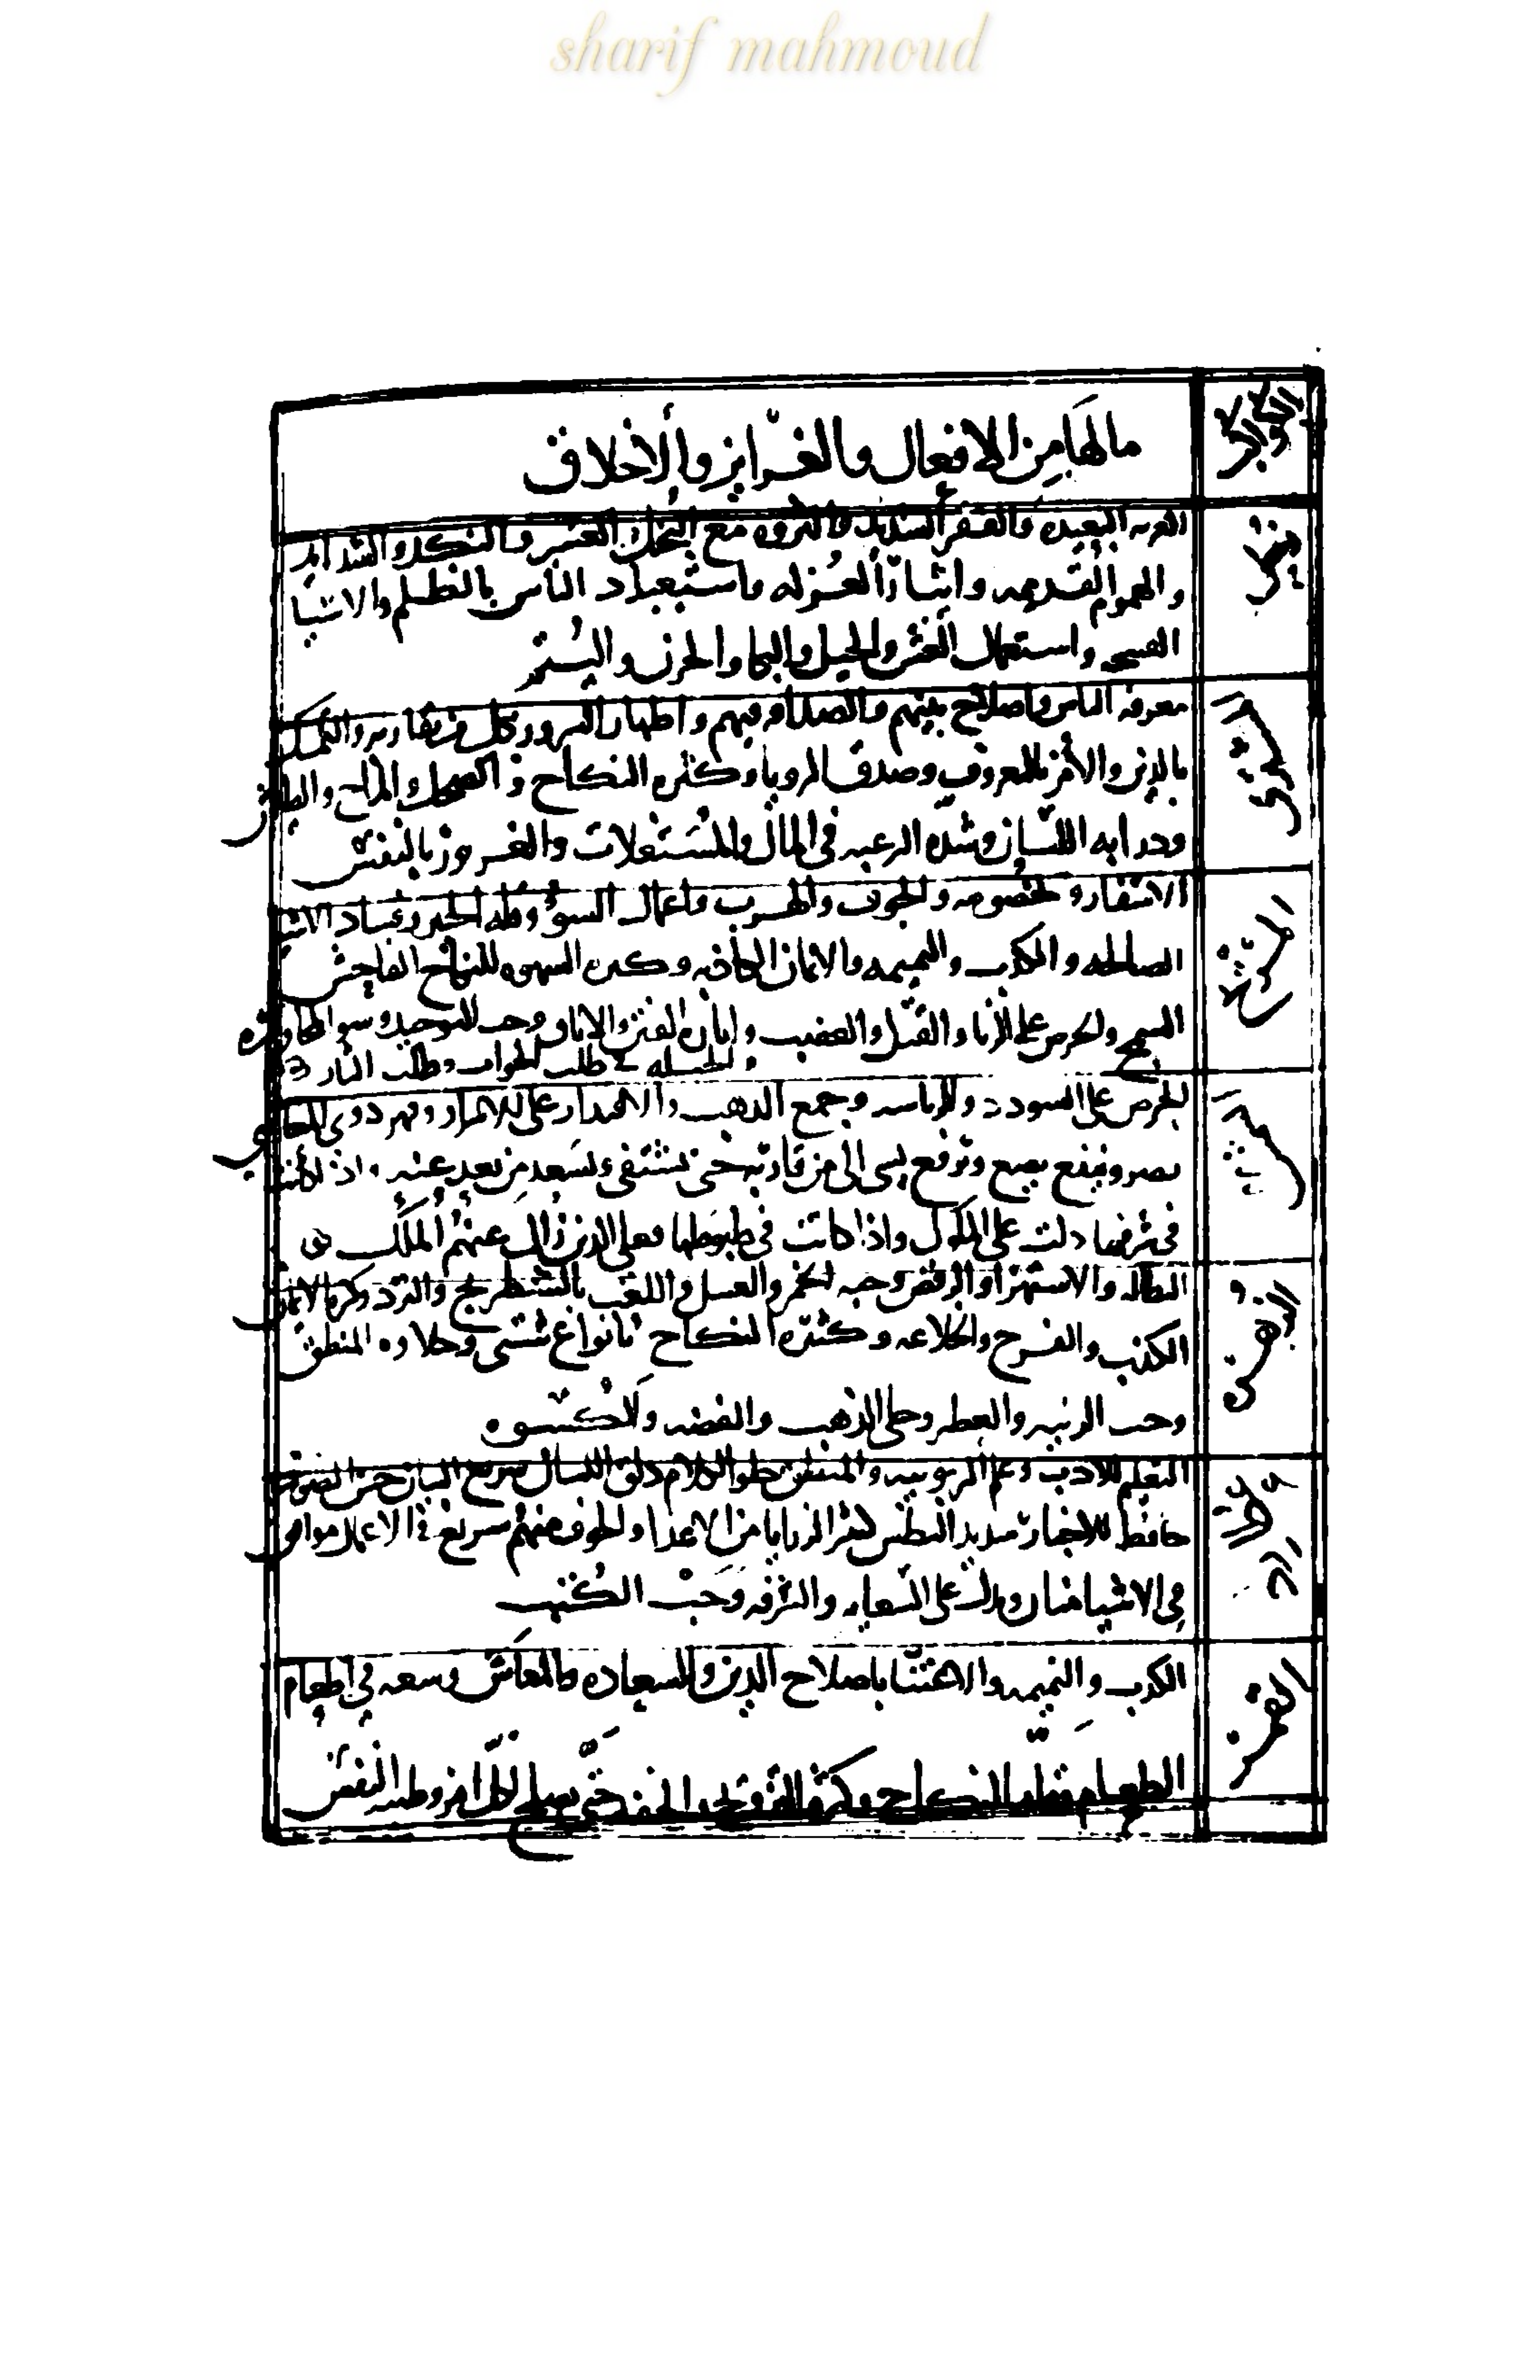 sharif mahmoud
الكواكب
مالها من الافعال والغرايز والاخلاق
زحل
الغربه البعيده والفقر الشديد والثروه مع البخل العسر والنكد والشدايد
والهموم القديمه وايثار العزله واستبعباد الناس بالظلم والاشيا
واستعمال الغش والحيل والبكا والحزن واليتم
المشترى
معرفه الناس واصلاح بينهم فيهم واظهار السرور
بالدين والامر بالمعروف وصدق الرويا وكثره النكاح والضحك والمزاح
وحرابه اللسان وشده الرغبه فى المال والمستغلات والغرور بالنفس
المريخ
الاشفار والخصومه والخوف والهرب واعمال السوء وقله الخير وفساد الاشيا
الصالحه والكذب والنميمه والايمان الكاذبه وكثره الشهوه للنكاح الفاحش
السمج والحرص على الزنا والقتل والغضب
الحيله في طلب الجواب وطلب الثار
الشمس
الحرص على السودد والرياسه وجمع الذهب والاقتدار على الاشرار وقهر ذوى
تضر وتنفع تضع وترفع تسى الى من قاربه حتى تشقى وتسعد من بعد عنه واذا كانت
فى شرفها دلت على الملوك واذا كانت فى هبوطها فعلى الذين زال عنهم الملك
الزهره
البطاله والاستهزا والرقص وحبه الخمر والعسل واللعب بالشطرنج والنرد وكثره الايمان
الكذب والفرح والخلاعه وكثره النكاح بانواع شتى وحلاوه المنطق
وحب الزينه والعطر وحلى الذهب والفضه والكسوه
عطارد
التعلم للادب وعلم الربوبيه والمنطق حلو الكلام دلق اللسان سريع البيان حسن الصوت
حافظ للاخبار شديد البطش كثر الرزايا من الاعدا والخوف منهم سريع في الاعمال
في الاشيا على السعايه والشرفه وحب الكتب
القمر
الكذب والنميمه والاعتنا باصلاح الدين والسعاده والمعاش وسعه في اطعام
الطعام النكاح حتى يصلح لكل امر وطيبه النفس